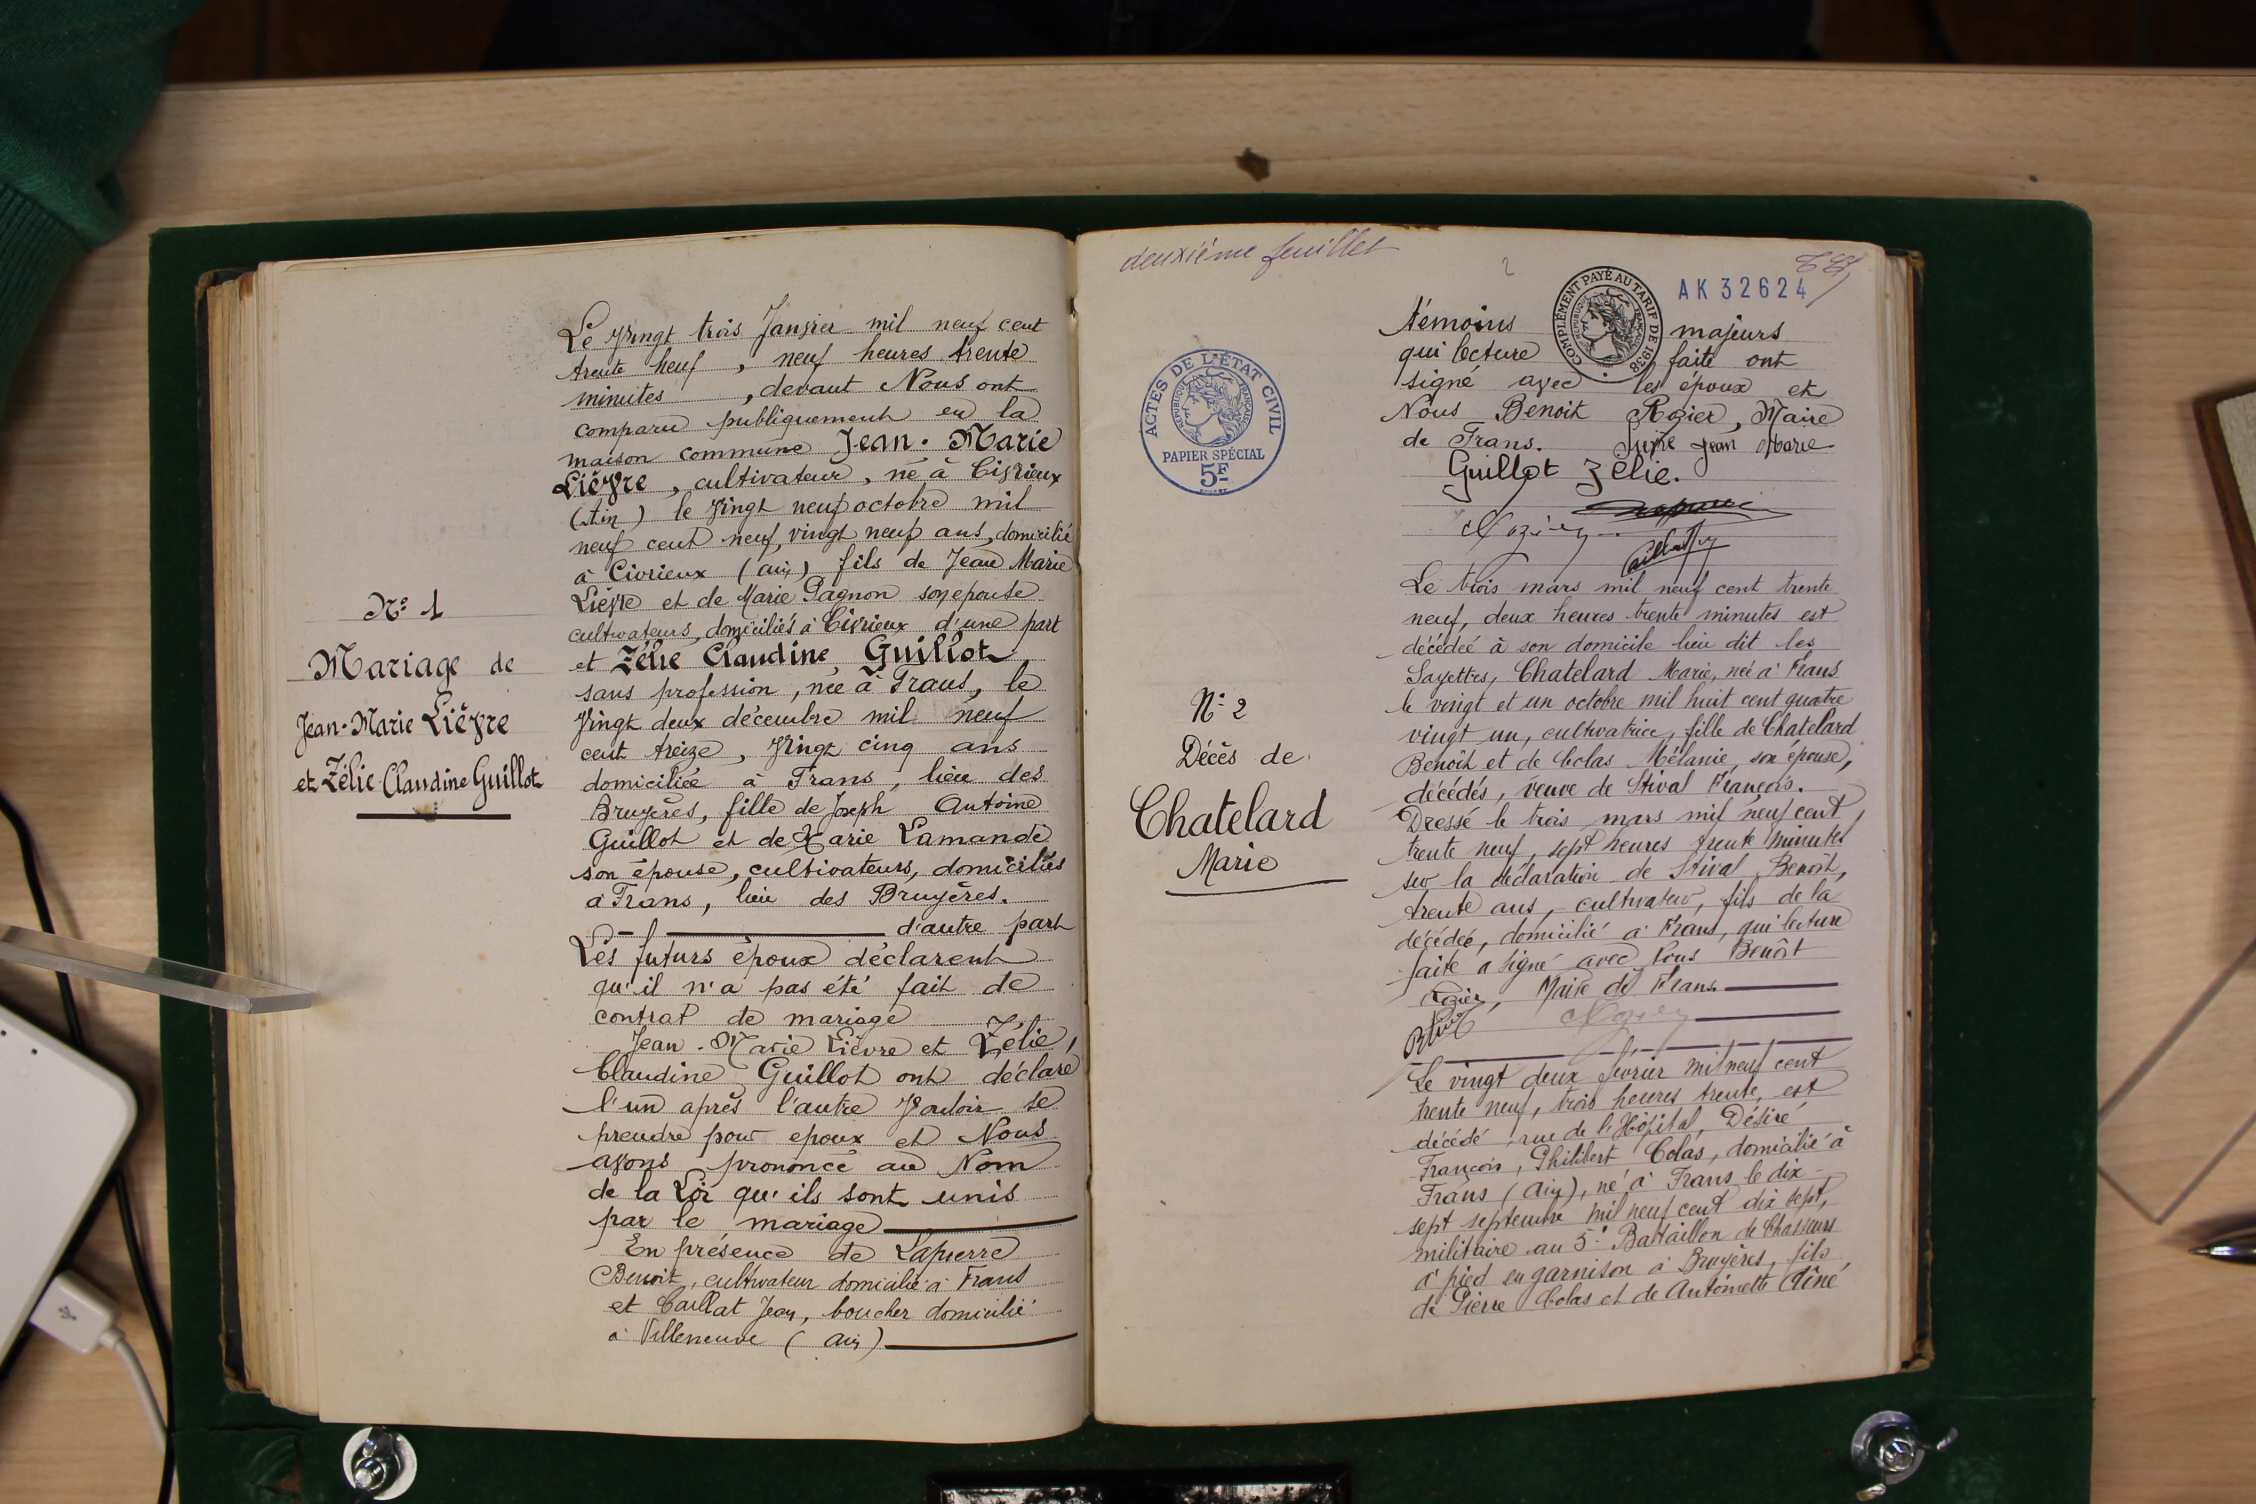 Le Vingt trois Janvier mil neuf cent
trente neuf, neuf heures trente
minutes, devant Nous ont
comparu publiquement en la
maison commune Jean-Marie
Lièvre, cultivateur, né à Civrieux
(Ain) le Vingt neuf octobre mil
neuf cent neuf, vingt neuf ans, domicilié
à Civrieux (ain) fils de Jean Marie
Lièvre et de Marie Gagnon son epouse
cultivateurs, domiciliés à Civrieux d'une part
et Zélie Claudine Guillot
sans profession, née à Frans, le
Vingt deux décembre mil neuf
cent treize, Vingt cinq ans
domiciliée à Frans, lieu des
Bruyères, fille de Joseph Antoine
Guillot et de Marie Lamande
son épouse, cultivateurs, domiciliés
à Frans, lieu des Bruyères.
d'autre part
Les futurs époux déclarent
qu'il n'a pas été fait de
contrat de mariage
Jean-Marie Lièvre et Zélie,
Claudine Guillot ont déclaré
l'un après l'autre Vouloir se
prendre pour epoux et Nous
avons prononcé au Nom
de la Loi qu'ils sont unis
par le mariage
En présence de Lapierre
Benoit, cultivateur domicilié à Frans
et Caillat Jean, boucher domicilié
à Villeneuve (ain)
N° 1
Mariage de
Jean-Marie Lièvre
et Zélie-Claudine Guillot
deuxième feuillet
2
AK 32624
COMPLÉMENT PAYÉ AU TARIF DE 1938
RÉPUBLIQUE FRANÇAISE
ACTES DE L'ÉTAT CIVIL
RÉPUBLIQUE FRANÇAISE
PAPIER SPÉCIAL
5F
témoins majeurs
qui lecture faite ont
signé avec les époux et
Nous Benoit Rozier, Maire
de Frans. Lièvre Jean Marie
Guillot Zélie.
Rozier
Le trois mars mil neuf cent trente
neuf, deux heures trente minutes est
décédée à son domicile lieu dit les
Sayettes, Chatelard Marie, née à Frans
le vingt et un octobre mil huit cent quatre
vingt un, cultivatrice, fille de Chatelard
Benoît et de Colas Mélanie, son épouse,
décédés, veuve de Stival François.
Dressé le trois mars mil neuf cent
trente neuf, sept heures trente minutes
sur la déclaration de Stival Benoît,
trente ans, cultivateur, fils de la
décédée, domicilié à Frans, qui lecture
faite a signé avec Nous Benôit
Rozier, Maire de Frans
Rozier
N° 2
Décès de
Chatelard
Marie
Le vingt deux février mil neuf cent
trente neuf, trois heures trente, est
décédé, rue de l'Hôpital, Désiré
François, Philibert Colas, domicilié à
Frans (Ain), né à Frans le dix-
sept septembre mil neuf cent dix sept,
militaire au 5e Bataillon de Chasseurs
à pied en garnison à Bruyères, fils
de Pierre Colas et de Antoinette Aîné